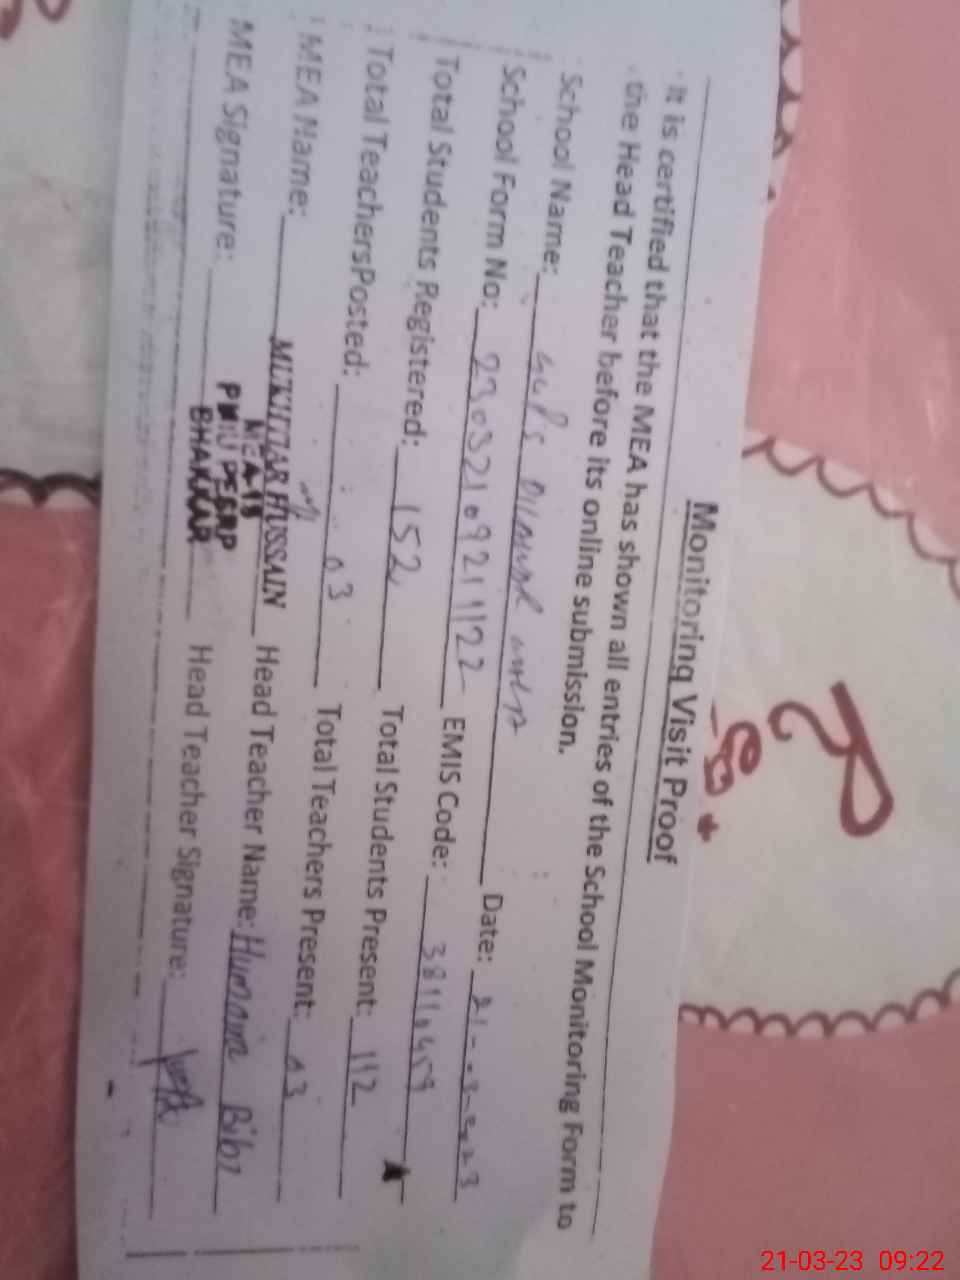 Monitoring Visit Proof
It is certified that the MEA has shown all entries of the School Monitoring Form to
the Head Teacher before its online submission.
School Name: Date: 21-3-2023
School Form No: 2303210921122 EMIS Code: 38110459
Total Students Registered: 152 Total Students Present: 112
Total TeachersPosted: 03 Total Teachers Present: 03
MEA Name: MUKHTIAR HUSSAIN Head Teacher Name: Humaira Bibi
MEA Signature: Head Teacher Signature:
BHAKKAR
21-03-23 09:22